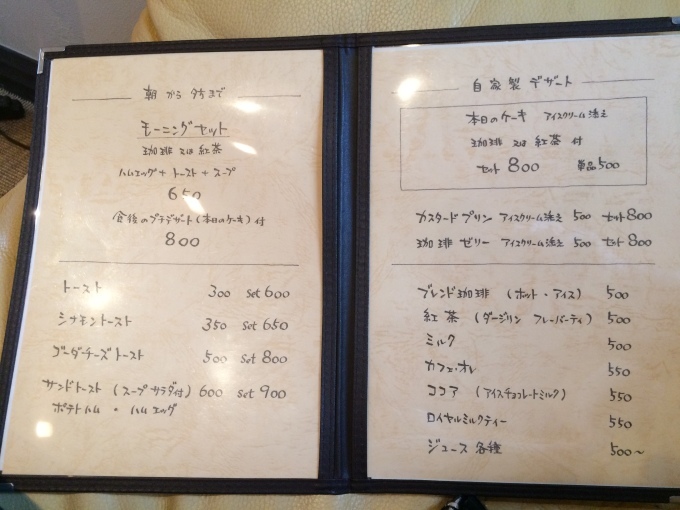 朝から夕方まで
モーニングセット
珈琲又は紅茶
ハムエッグ+トースト+スープ
650
食後のプチデザート(本日のケーキ)付
800
トースト 300 set 600
シナモントースト 350 set 650
ゴーダチーズトースト 500 set 800
サンドトースト (スープサラダ付) 600 set 900
ポテトハム ・ ハムエッグ
自家製デザート
本日のケーキ アイスクリーム添え
珈琲 又は 紅茶 付
セット 800 単品 500
カスタードプリン アイスクリーム添え 500 セット 800
珈琲ゼリー アイスクリーム添え 500 セット 800
ブレンド珈琲 (ホット・アイス) 500
紅茶 (ダージリン フレーバーティ) 500
ミルク 500
カフェ・オレ 550
ココア (アイスチョコレートミルク) 550
ロイヤルミルクティー 550
ジュース各種 500〜